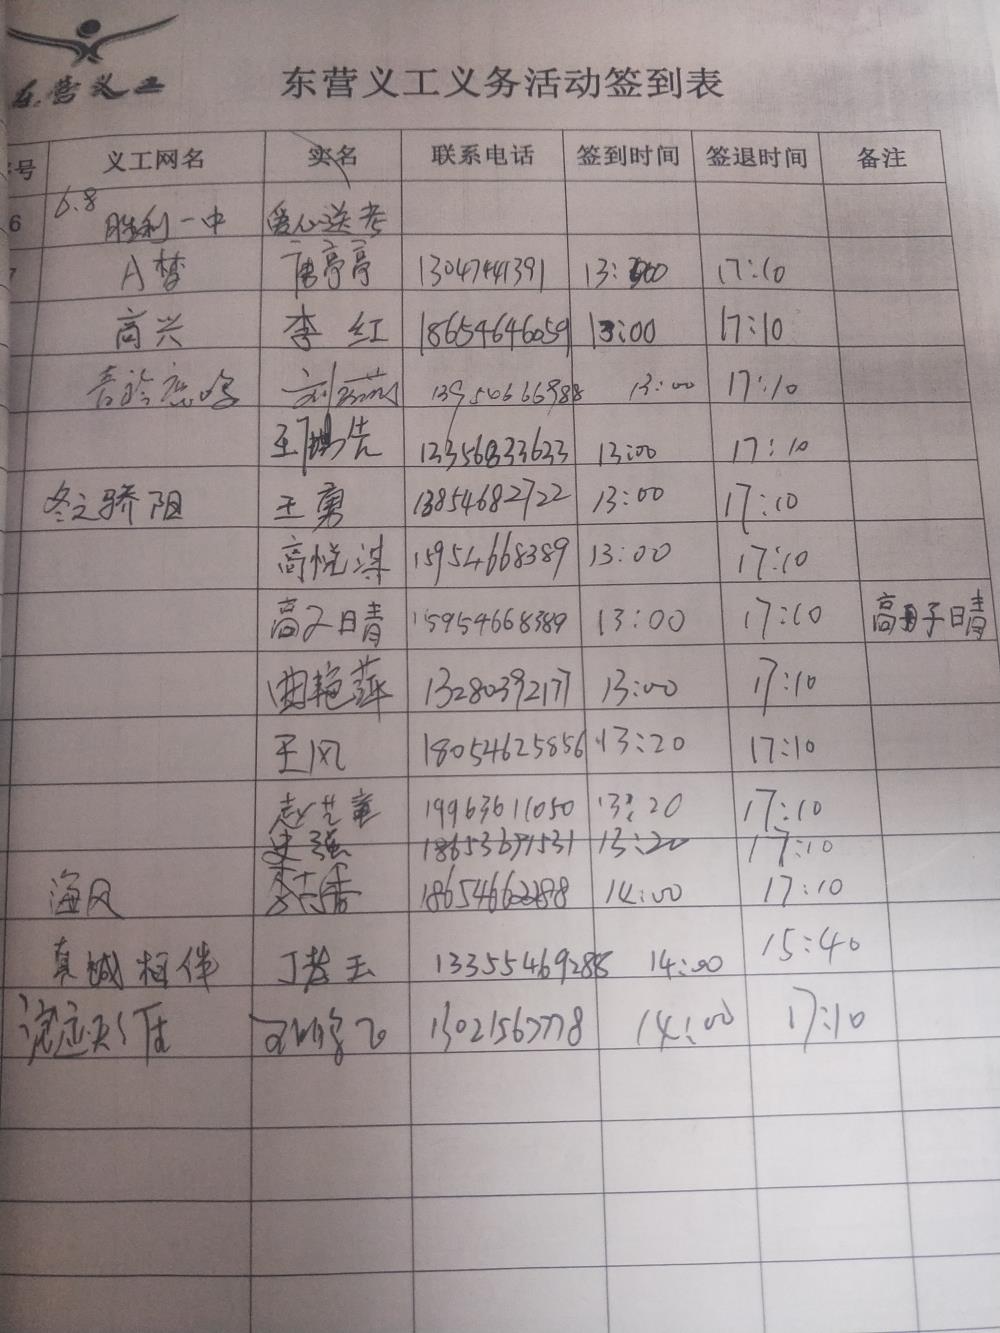 东营义工
东营义工义务活动签到表
号 义工网名 实名 联系电话 签到时间 签退时间 备注
6 6.8 胜利一中 爱心送考
7 A梦 唐亭亭 13047441391 13:00 17:10
高兴 李红 18654646059 13:00 17:10
刘 13954666988 13:00 17:10
王 13356833623 13:00 17:10
冬之骄阳 王勇 13854682722 13:00 17:10
高悦 15954668389 13:00 17:10
高子晴 15954668389 13:00 17:10 高子晴
曲艳萍 13280392177 13:00 17:10
王风 18054625856 13:20 17:10
赵 19963611050 13:20 17:10
史强 13:20 17:10
海风 14:00 17:10
真诚相伴 丁 13355469288 14:00 15:40
14:00 17:10